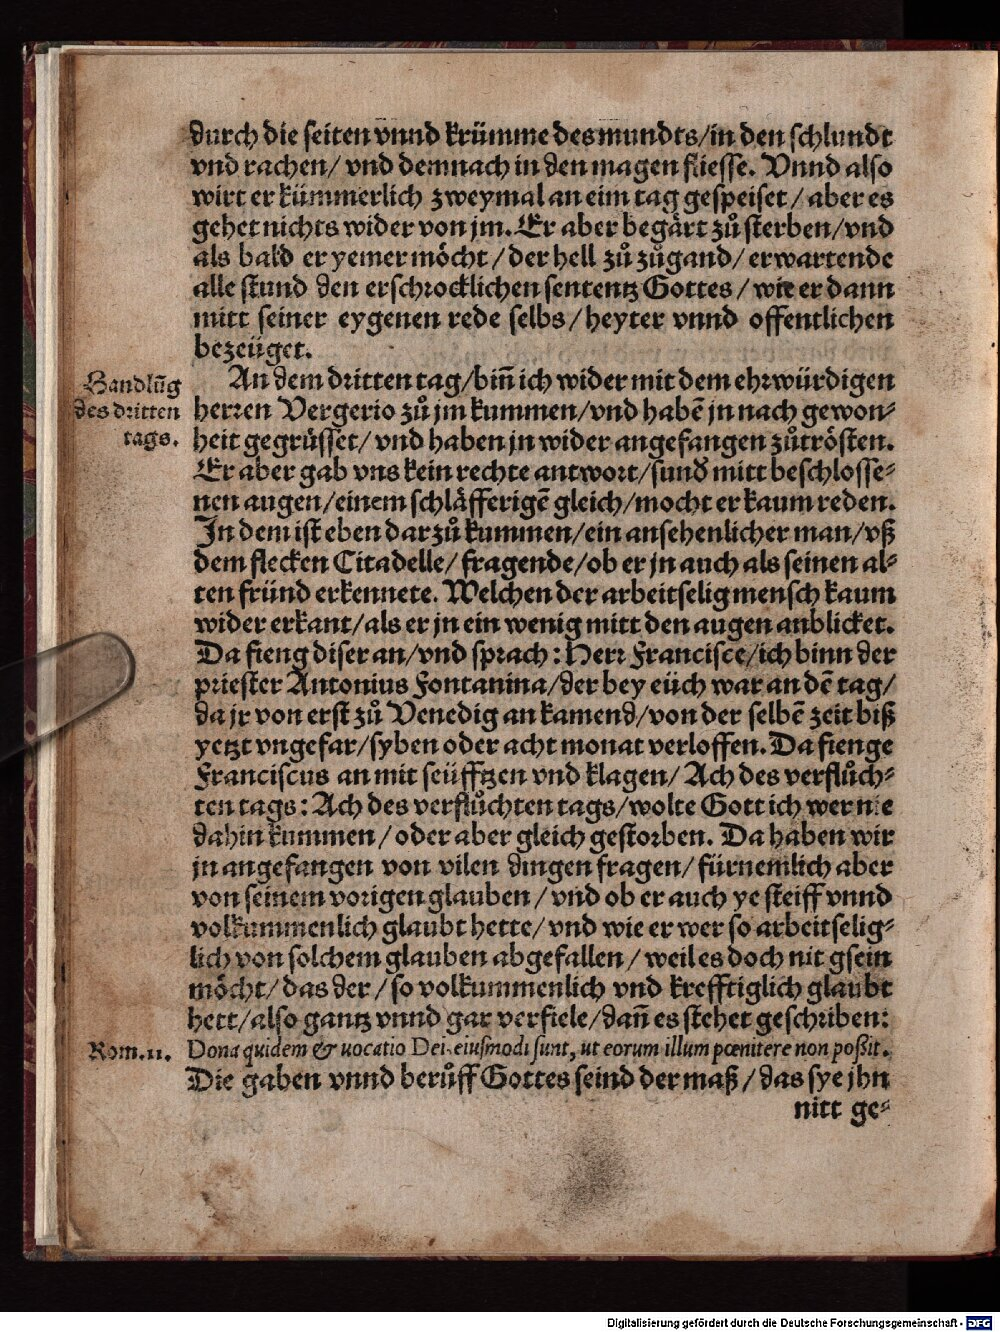 durch die seiten vnnd krümme des mundts/in den schlundt
vnd rachen/ vnd demnach in den magen fliesse. Vnnd also
wirt er kümmerlich zweymal an eim tag gespeiset/ aber es
gehet nichts wider von jm. Er aber begärt zů sterben/vnd
als bald er yemer möcht/der hell zů zůgand/ erwartende
alle stund den erschrocklichen sententz Gottes/ wie er dann
mitt seiner eygenen rede selbs/heyter vnnd offentlichen
bezeüget.
Handlũg
des dritten
tags.
An dem dritten tag/biñ ich wider mit dem ehrwürdigen
herren Vergerio zů jm kummen/vnd habẽ jn nach gewon⸗
heit gegrüsset/ vnd haben jn wider angefangen zůtrösten.
Er aber gab vns kein rechte antwort/sund̕ mitt beschlosse⸗
nen augen/einem schläfferigẽ gleich/mocht er kaum reden.
In dem ist eben darzů kummen/ein ansehenlicher man/vß
dem flecken Citadelle/ fragende/ob er jn auch als seinen al⸗
ten fründ erkennete. Welchen der arbeitselig mensch kaum
wider erkant/als er jn ein wenig mitt den augen anblicket.
Da fieng diser an/vnd sprach: Herr Francisce/ich binn der
priester Antonius Fontanina/der bey eüch war an dẽ tag/
da jr von erst zů Venedig an kamend/von der selbẽ zeit biß
yetzt vngefar/syben oder acht monat verloffen. Da fienge
Franciscus an mit seüfftzen vnd klagen/ Ach des verflůch⸗
ten tags: Ach des verflůchten tags/wolte Gott ich wer nie
dahin kummen/oder aber gleich gestorben. Da haben wir
jn angefangen von vilen dingen fragen/ fürnemlich aber
von seinem vorigen glauben/ vnd ob er auch ye steiff vnnd
volkummenlich glaubt hette/ vnd wie er wer so arbeitselig⸗
lich von solchem glauben abgefallen/ weil es doch nit gsein
möcht/ das der/ so volkummenlich vnd krefftiglich glaubt
hett/also gantz vnnd gar verfiele/dañ es stehet geschriben:
Rom.11.
Dona quidem & uocatio Dei eiusmodi sunt, ut eorum illum pœnitere non poßit.
Die gaben vnnd berůff Gottes seind der maß/das sye jhn
nitt ge⸗
Digitalisierung gefördert durch die Deutsche Forschungsgemeinschaft - DFG